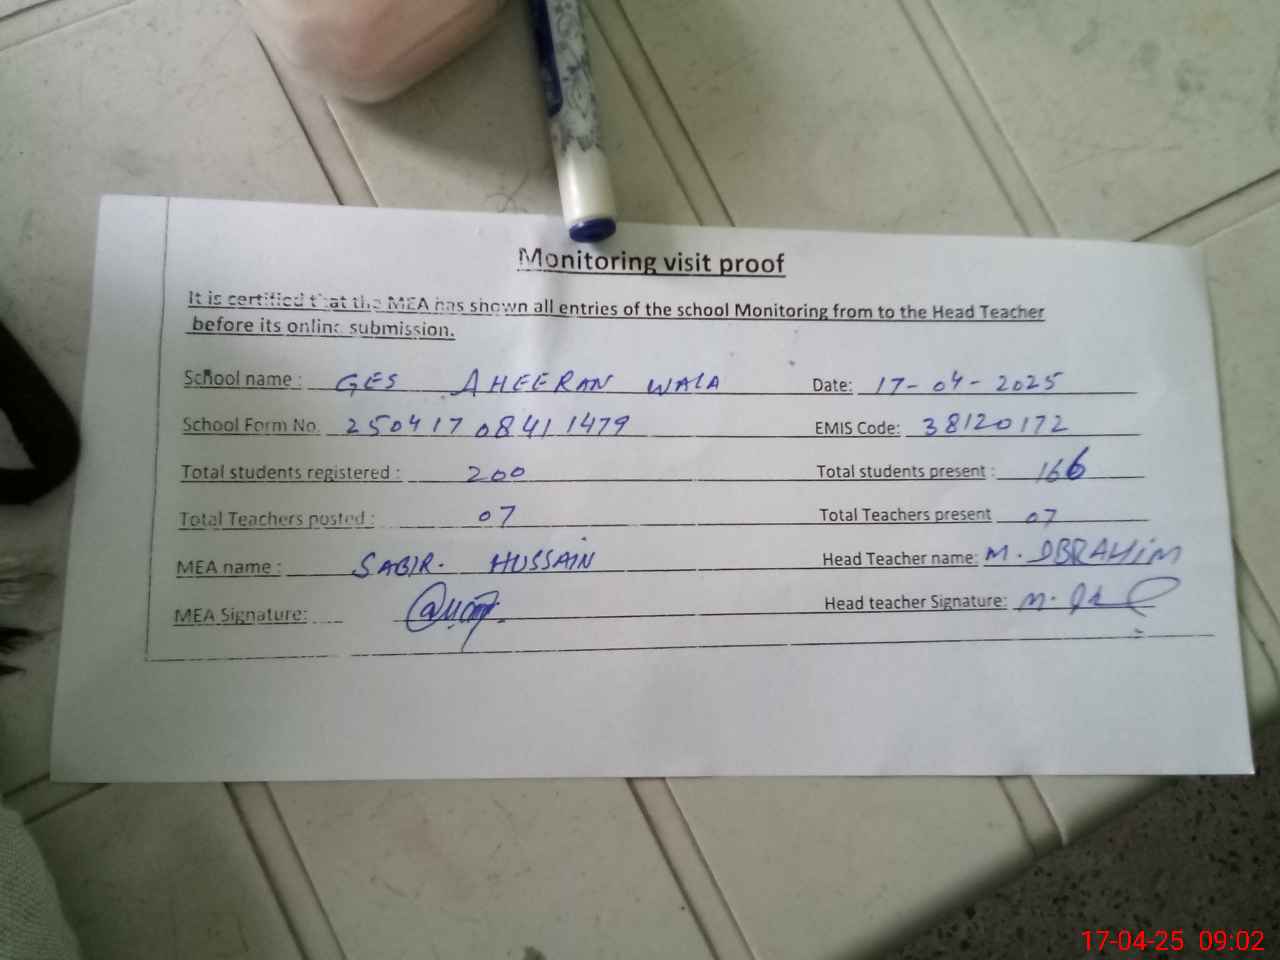 Monitoring visit proof
It is certified that the MEA has shown all entries of the school Monitoring from to the Head Teacher
before its online submission.
School name : GES AHEERAN WALA Date: 17-04-2025
School Form No. 25041708411479 EMIS Code: 38120172
Total students registered : 200 Total students present : 166
Total Teachers posted : 07 Total Teachers present 07
MEA name : SABIR. HUSSAIN Head Teacher name: M. IBRAHIM
MEA Signature: Head teacher Signature:
17-04-25 09:02